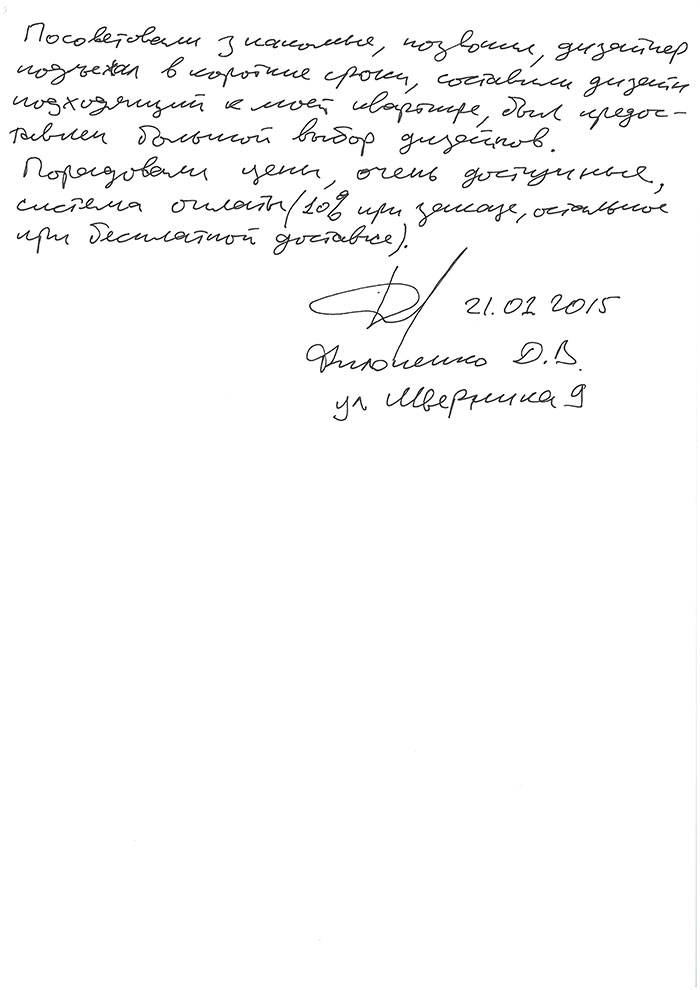 Посоветовали знакомые, позвонил, дизайнер
подъехал в короткие сроки, составили дизайн
подходящий к моей квартире, был предос-
тавлен большой выбор дизайнов.
Порадовали цены, очень доступные,
система оплаты (10% при заказе, остальное
при бесплатной доставке).
21.02 2015
Филоненко Д.В.
ул Шверника 9